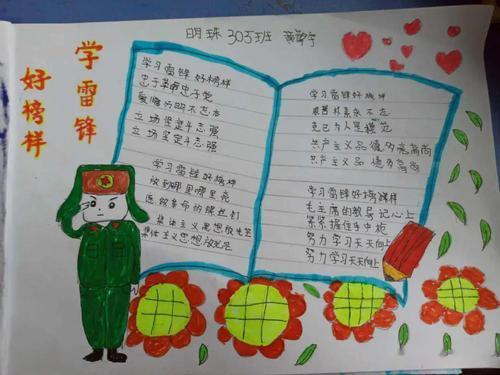 明珠 305班
学雷锋
好榜样
学习雷锋 好榜样
忠于革命忠于党
爱憎分明不忘本
立场坚定斗志强
立场坚定斗志强
学习雷锋好榜样
放到哪里哪里亮
愿做革命的螺丝钉
集体主义思想放光芒
集体主义思想放光芒
学习雷锋好榜样
艰苦朴素永不忘
克己为人是模范
共产主义品德多高尚
共产主义品德多高尚
学习雷锋好榜样
毛主席的教导记心上
紧紧握住手中枪
努力学习天天向上
努力学习天天向上